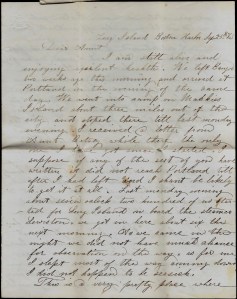 Long Island Boston Harbor Sept
Dear Aunt
I am still alive and
enjoying excellent health. We left Bangor
one week ago this morning and arrived at
Portland in the evening of the same
day. We went into camp on Mackies
Island about three miles out of the
city and stoped there till last monday
evening. I received a letter from
Aunt while there the only
one I have had since I started. I
suppose if any of the rest of you have
written it did not reach Portland till
after I had left and I shant be likely
to get it at all. Last monday evening
about seven oclock two hundred of us started
for Long Island on board the steamer
we got on here about six the
next morning. As we came in the
night we did not have much chance
for observation on the way, as for me
I slept most of the way coming down
I did not happen to be seasick.
This is a very pretty place where